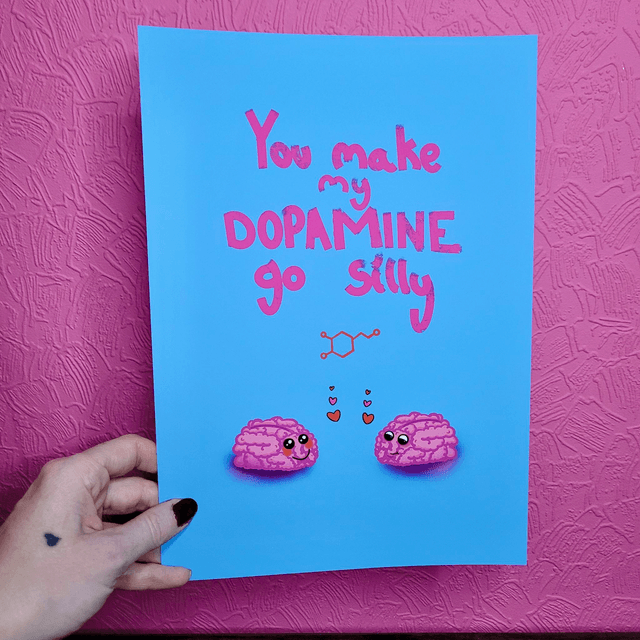 You make
my
DOPAMINE
go silly